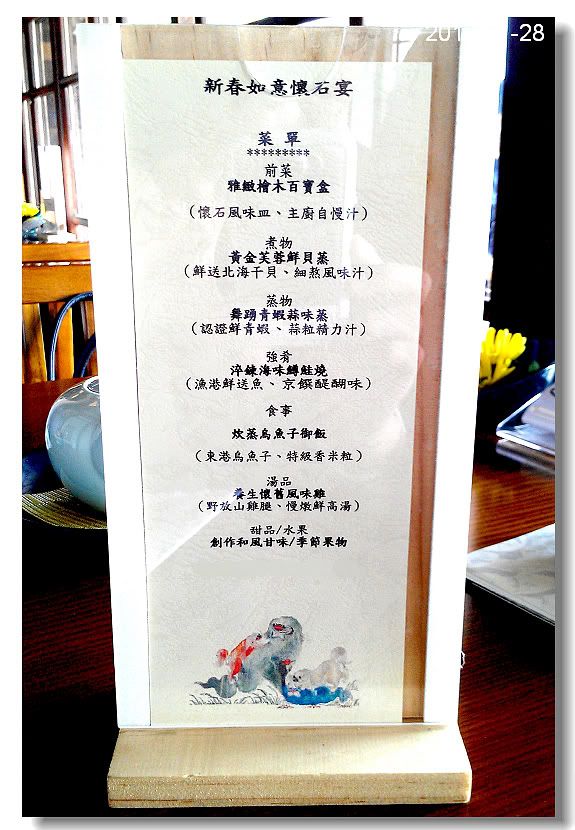 -28
新春如意懷石宴
菜 單
*********
前菜
雅緻檜木百寶盒
(懷石風味皿、主廚自慢汁)
煮物
黃金芙蓉鮮貝蒸
(鮮送北海干貝、細熬風味汁)
蒸物
舞踴青蝦蒜味蒸
(認證鮮青蝦、蒜粒精力汁)
強肴
淬鍊海味鱒鮭燒
(漁港鮮送魚、京饌醍醐味)
食事
炊蒸烏魚子御飯
(東港烏魚子、特級香米粒)
湯品
養生懷舊風味雞
(野放山雞腿、慢燉鮮高湯)
甜品/水果
創作和風甘味/季節果物